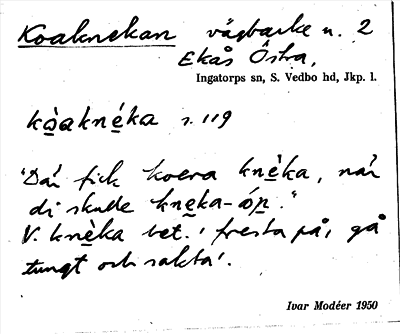 Koaknekan vägbacke n. 2
Ekås Östra,
Ingatorps sn, S. Vedbo hd, Jkp. l.
kòaknéka s. 119
"Där fick koera knèka, när
di skulle knèka-óp."
V. knèka bet. 'fresta på, gå
tungt och sakta'.
Ivar Modéer 1950